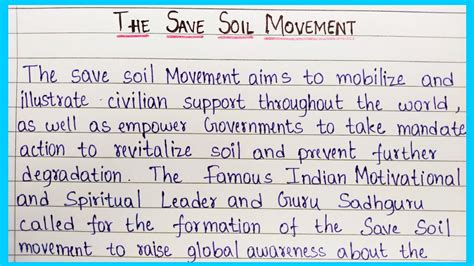 THE SAVE SOIL MOVEMENT
The save soil Movement aims to mobilize and
illustrate civilian support throughout the world,
as well as empower Governments to take mandate
action to revitalize soil and prevent further
degradation. The Famous Indian Motivational
and Spiritual Leader and Guru Sadhguru
called for the formation of the Save Soil
movement to raise global awareness about the